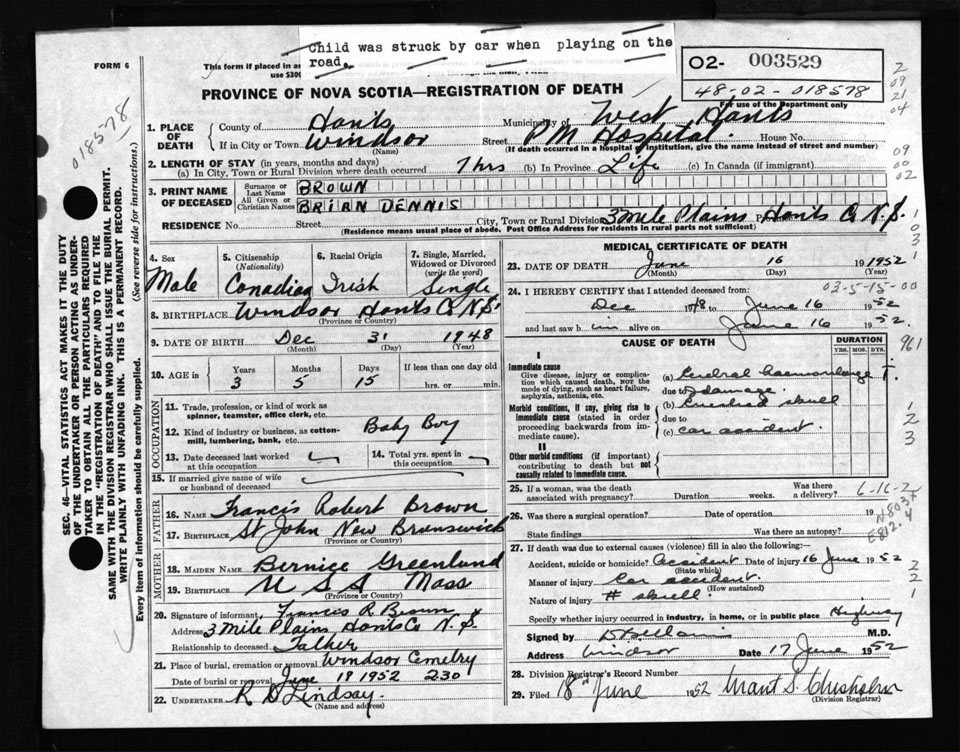 Child was struck by car when playing on the
road.
FORM 6
This form if placed in an
use $300
O2- 003529
48-02-018578
For use of the Department only
018578
PROVINCE OF NOVA SCOTIA—REGISTRATION OF DEATH
1. PLACE OF DEATH
County of Hants Municipality of West Hants
If in City or Town Windsor Street P M Hospital. House No.
(Name) (If death occurred in a hospital or institution, give the name instead of street and number)
2. LENGTH OF STAY (in years, months and days)
(a) In City, Town or Rural Division where death occurred 7 hrs (b) In Province Life (c) In Canada (if immigrant)
3. PRINT NAME OF DECEASED
Surname or Last Name BROWN
All Given or Christian Names BRIAN DENNIS
RESIDENCE No. Street City, Town or Rural Division 3 mile Plains Hants Co N.S.
(Residence means usual place of abode. Post Office Address for residents in rural parts not sufficient)
4. Sex Male
5. Citizenship (Nationality) Canadian
6. Racial Origin Irish
7. Single, Married, Widowed or Divorced (write the word) Single
8. BIRTHPLACE Windsor Hants Co N.S.
(Province or Country)
9. DATE OF BIRTH Dec 31 1948
(Month) (Day) (Year)
10. AGE in Years 3 Months 5 Days 15 If less than one day old
hrs. or min.
OCCUPATION
11. Trade, profession, or kind of work as
spinner, teamster, office clerk, etc.
12. Kind of industry or business, as cotton-
mill, lumbering, bank, etc. Baby Boy
13. Date deceased last worked
at this occupation
14. Total yrs. spent in
this occupation
15. If married give name of wife
or husband of deceased
FATHER
16. NAME Francis Robert Brown
17. BIRTHPLACE St John New Brunswick
(Province or Country)
MOTHER
18. MAIDEN NAME Bernice Greenlund
19. BIRTHPLACE U S A Mass
(Province or Country)
20. Signature of informant Francis R Brown
Address 3 Mile Plains Hants Co N.S.
Relationship to deceased Father
21. Place of burial, cremation or removal Windsor Cemetry
Date of burial or removal June 19 1952 230
22. UNDERTAKER R D Lindsay.
(Name and address)
MEDICAL CERTIFICATE OF DEATH
23. DATE OF DEATH June 16 1952
(Month) (Day) (Year)
03-5-15-00
24. I HEREBY CERTIFY that I attended deceased from:
Dec 1948 to June 16 1952
and last saw him alive on June 16 1952.
CAUSE OF DEATH
DURATION
YRS. MOS. DYS.
I
Immediate cause
Give disease, injury or complica-
tion which caused death, NOT the
mode of dying, such as heart failure,
asphyxia, asthenia, etc.
(a) Cerebral haemorrhage +
due to damage
Morbid conditions, if any, giving rise to
immediate cause (stated in order
proceeding backwards from im-
mediate cause).
(b) Crushed skull
due to
(c) car accident
II
Other morbid conditions (if important)
contributing to death but not
causally related to immediate cause.
25. If a woman, was the death
associated with pregnancy? Duration weeks. Was there
a delivery?
6-16-2
26. Was there a surgical operation? Date of operation 19
State findings Was there an autopsy?
N803
E812.4
27. If death was due to external causes (violence) fill in also the following:—
Accident, suicide or homicide? Accident Date of injury 16 June 1952
(State which)
Manner of injury Car accident.
(How sustained)
Nature of injury # skull.
Specify whether injury occurred in industry, in home, or in public place Highway
Signed by M.D.
Address Windsor Date 17 June 1952
28. Division Registrar's Record Number
29. Filed 18th June 1952 Grant S. Chisholm
(Division Registrar)
SEC. 46—VITAL STATISTICS ACT MAKES IT THE DUTY
OF THE UNDERTAKER OR PERSON ACTING AS UNDER-
TAKER TO OBTAIN ALL THE PARTICULARS REQUIRED
IN THE "REGISTRATION OF DEATH" AND TO FILE THE
SAME WITH THE DIVISION REGISTRAR WHO SHALL ISSUE THE BURIAL PERMIT.
WRITE PLAINLY WITH UNFADING INK. THIS IS A PERMANENT RECORD.
Every item of information should be carefully supplied. (See reverse side for instructions.)
2
09
21
04
09
00
02
1
0
3
1
961
1
2
3
2
2
1